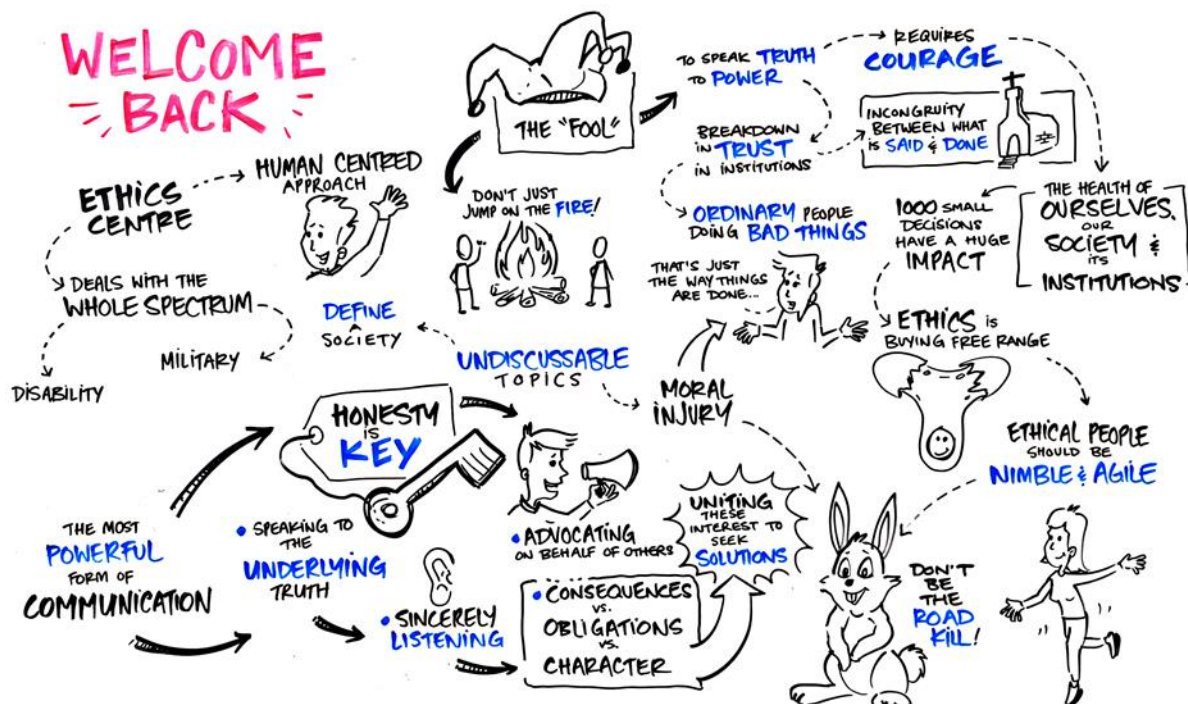 WELCOME
BACK
ETHICS
CENTRE
HUMAN CENTRED
APPROACH
DEALS WITH THE
WHOLE SPECTRUM
MILITARY
DISABILITY
THE "FOOL"
DON'T JUST
JUMP ON THE FIRE!
TO SPEAK TRUTH
TO POWER
REQUIRES
COURAGE
BREAKDOWN
IN TRUST
IN INSTITUTIONS
INCONGRUITY
BETWEEN WHAT
IS SAID & DONE
ORDINARY PEOPLE
DOING BAD THINGS
THAT'S JUST
THE WAY THINGS
ARE DONE...
THE HEALTH OF
OURSELVES,
OUR
SOCIETY &
ITS
INSTITUTIONS
1000 SMALL
DECISIONS
HAVE A HUGE
IMPACT
ETHICS IS
BUYING FREE RANGE
ETHICAL PEOPLE
SHOULD BE
NIMBLE & AGILE
DEFINE
SOCIETY
UNDISCUSSABLE
TOPICS
MORAL
INJURY
THE MOST
POWERFUL
FORM OF
COMMUNICATION
HONESTY
IS
KEY
• SPEAKING TO
THE
UNDERLYING
TRUTH
• SINCERELY
LISTENING
• ADVOCATING
ON BEHALF OF OTHERS
• CONSEQUENCES
VS.
OBLIGATIONS
VS.
CHARACTER
UNITING
THESE
INTEREST TO
SEEK
SOLUTIONS
DON'T
BE
THE
ROAD
KILL!